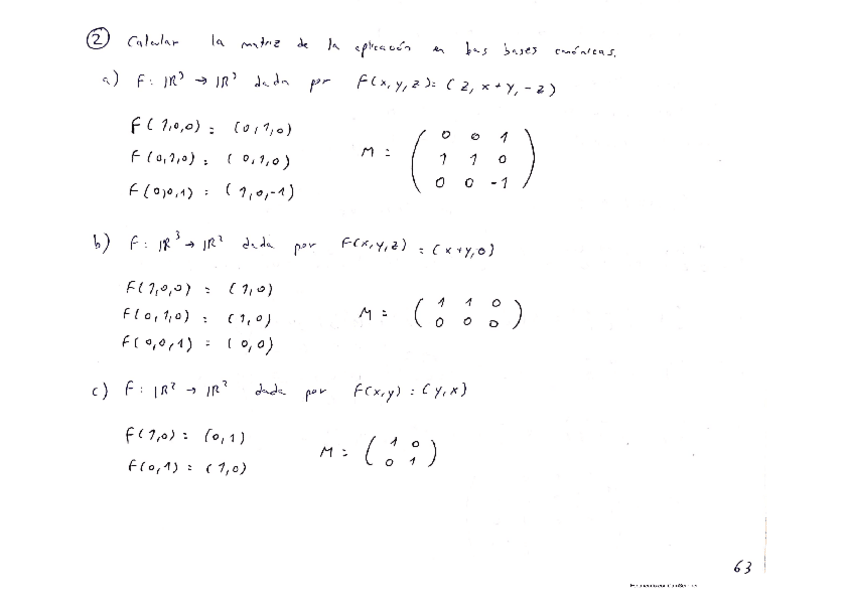 ② Calcular la matriz de la aplicación en las bases canónicas.
a) F: IR³ → IR³ dada por F(x,y,z) = (z, x+y, -z)
F(1,0,0) = (0,1,0)
F(0,1,0) = (0,1,0)
F(0,0,1) = (1,0,-1)
M = ( 0 0 1
1 1 0
0 0 -1 )
b) F: IR³ → IR² dada por F(x,y,z) = (x+y,0)
F(1,0,0) = (1,0)
F(0,1,0) = (1,0)
F(0,0,1) = (0,0)
M = ( 1 1 0
0 0 0 )
c) F: IR² → IR² dada por F(x,y) = (y,x)
F(1,0) = (0,1)
F(0,1) = (1,0)
M = ( 1 0
0 1 )
63